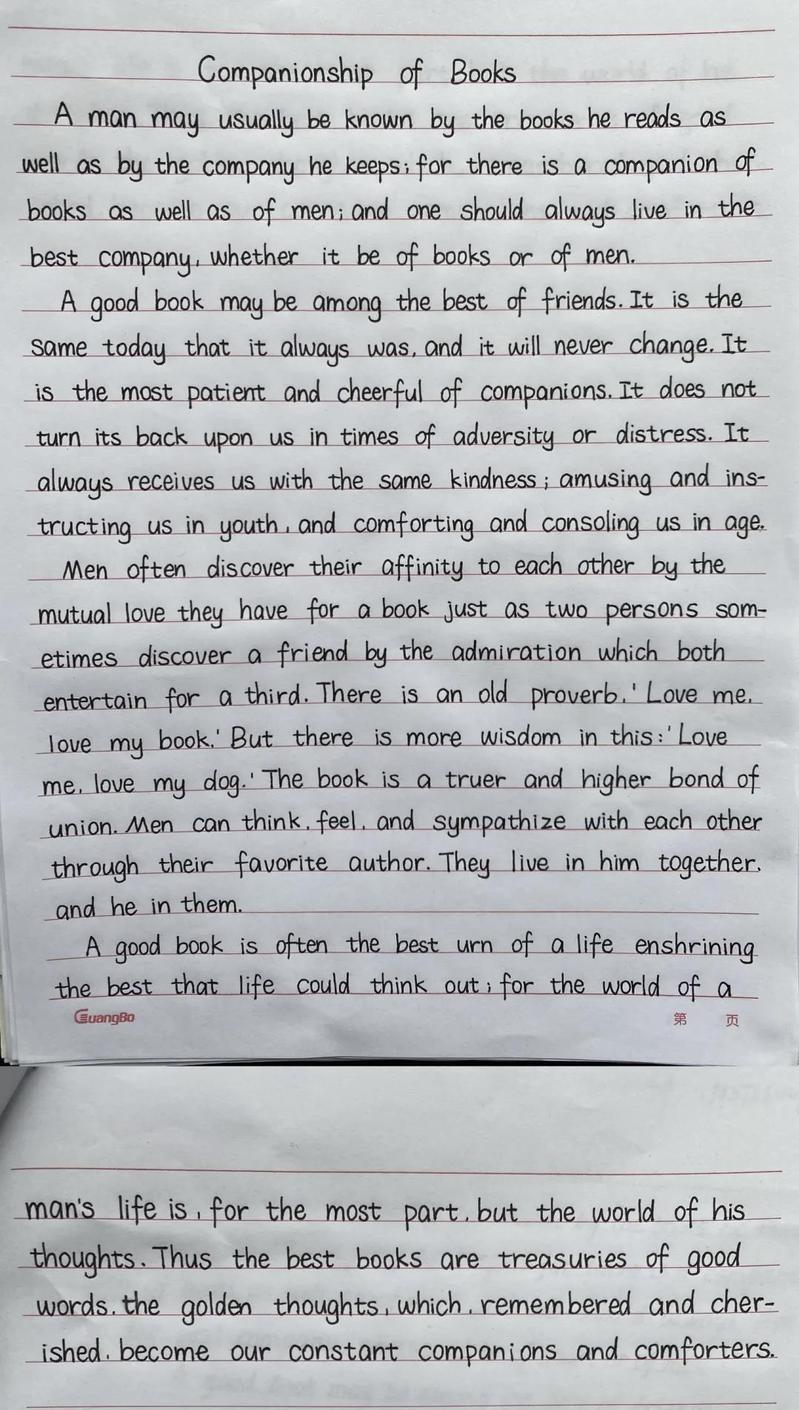 Companionship of Books
A man may usually be known by the books he reads as
well as by the company he keeps; for there is a companion of
books as well as of men; and one should always live in the
best company, whether it be of books or of men.
A good book may be among the best of friends. It is the
same today that it always was, and it will never change. It
is the most patient and cheerful of companions. It does not
turn its back upon us in times of adversity or distress. It
always receives us with the same kindness; amusing and ins-
tructing us in youth, and comforting and consoling us in age.
Men often discover their affinity to each other by the
mutual love they have for a book just as two persons som-
etimes discover a friend by the admiration which both
entertain for a third. There is an old proverb, 'Love me,
love my book.' But there is more wisdom in this: 'Love
me, love my dog.' The book is a truer and higher bond of
union. Men can think, feel, and sympathize with each other
through their favorite author. They live in him together,
and he in them.
A good book is often the best urn of a life enshrining
the best that life could think out; for the world of a
GuangBo
第 页
man's life is, for the most part, but the world of his
thoughts. Thus the best books are treasuries of good
words, the golden thoughts, which, remembered and cher-
ished, become our constant companions and comforters.